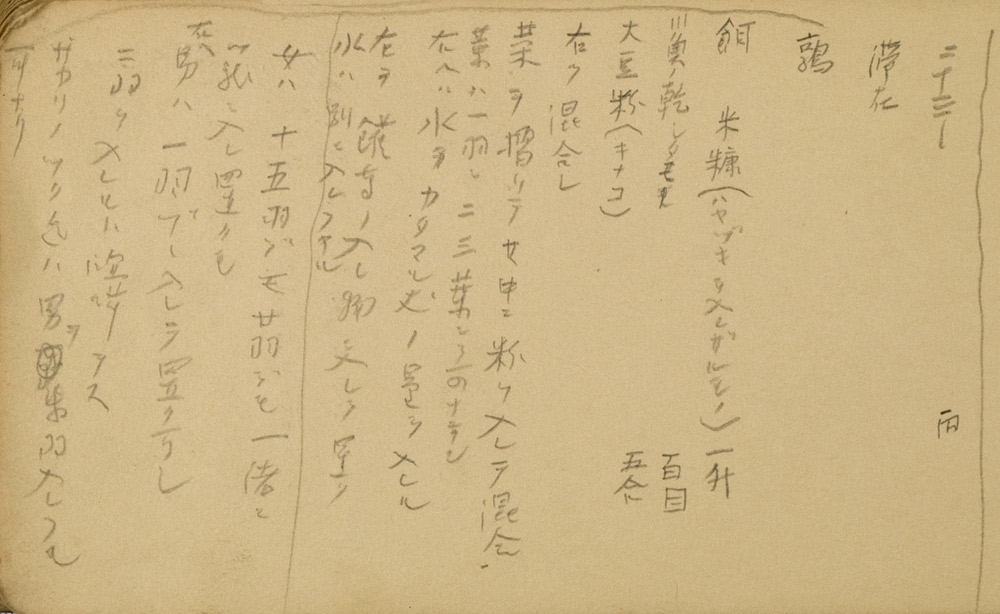 二十三日 雨
滞在
鶉
餌 米糠(ハヤヅキヲ入レザルモノ) 一升
川魚ノ乾シタモノ 百目
大豆粉(キナコ) 五合
右ヲ混合シ
菜ヲ摺リテ其中ニ粉ヲ入レテ混合
葉ハ一羽ニ二三葉
右ヘハ水ヲカタマル丈ノ量ヲ入レル
右ヲ 入レ 入レテ置ク
水ハ別ニ入レテヤル
女ハ十五羽デモ廿羽デモ一緒ニ
籠ニ入レ置クモ
男ハ一羽ヅヽ入レテ置クベシ
二羽ヲ入レレバ喧嘩ヲス
サカリノツク迄ハ男ヲ 羽入レテモ
可ナリ